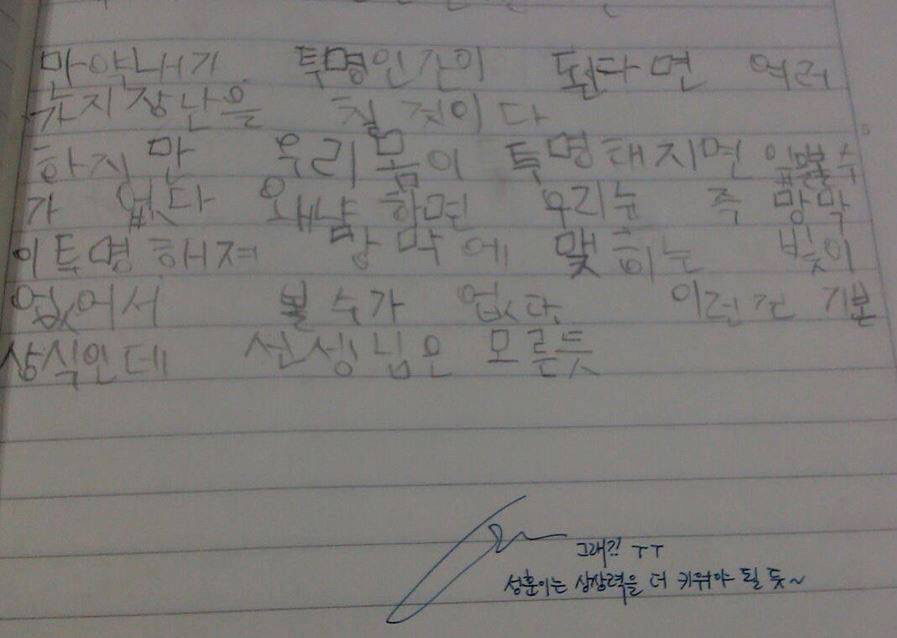 만약내가 투명인간이 된다면 여러
가지장난을 칠 것이다
하지만 우리몸이 투명해지면 수
가 없다 왜냠하면 우리눈 즉 망막
이투명해져 망막에 맺히는 빛이
없어서 볼수가 없다. 이런건 기본
상식인데 선생님은 모른듯
그래?! ㅜㅜ
성훈이는 상상력을 더 키워야 될 듯~